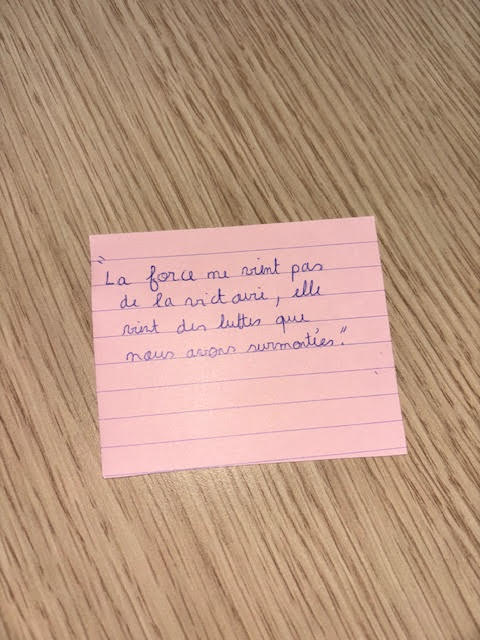 "La force ne vient pas
de la victoire, elle
vient des luttes que
nous avons surmontées."